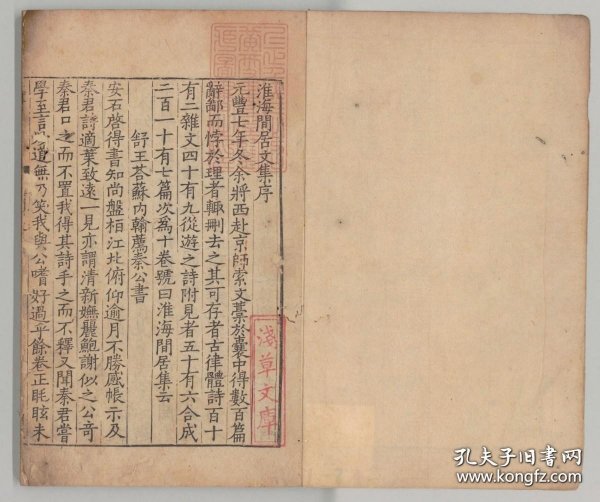 淮海閒居文集序
元豐七年冬余將西赴京師索文藁於囊中得數百篇
辭鄙而悖於理者輙刪去之其可存者古律體詩百十
有二雜文四十有九從遊之詩附見者五十有六合成
二百一十有七篇次爲十卷號曰淮海閒居集云
舒王荅蘇內翰薦秦公書
安石啓得書知尚盤桓江北俯仰逾月不勝感悵示及
秦君詩適葉致遠一見亦謂清新嫵麗鮑謝似之公奇
秦君口之而不置我得其詩手之而不釋又聞秦君嘗
學至言玅道無乃笑我與公嗜好過乎餘卷正眊眩未
淺草文庫
孔夫子旧书网
www.kongfz.com